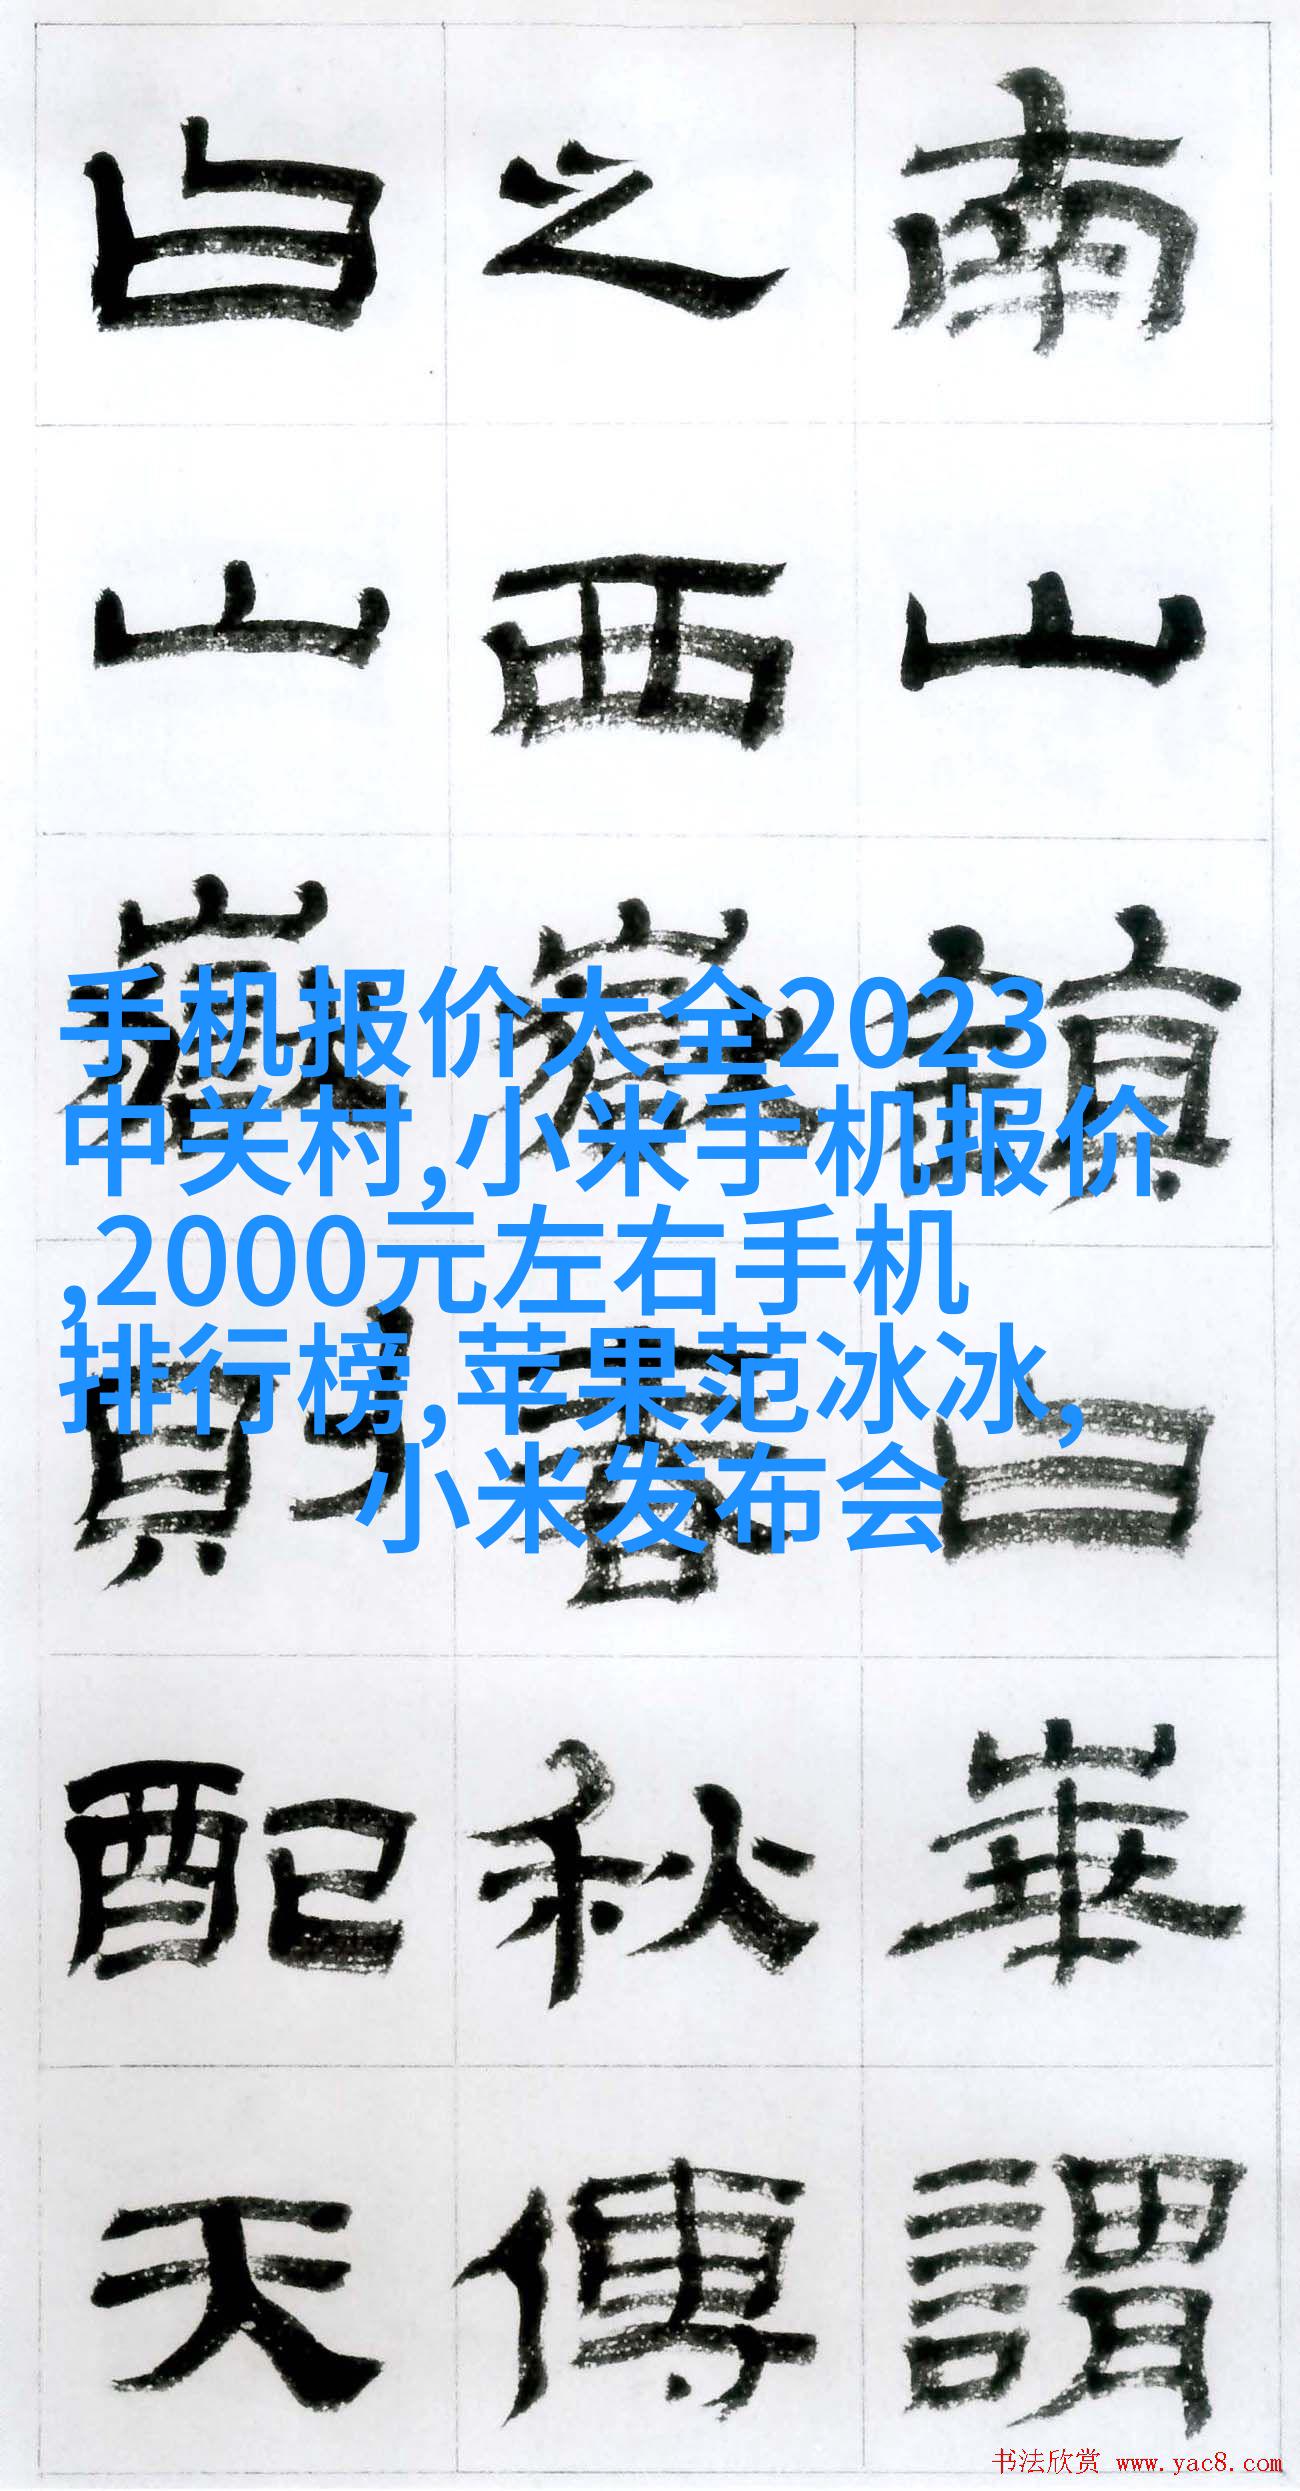 南山鎮曰華謂
之西嶽春秋傳
曰山嶽則配天
手机报价大全2023
中关村,小米手机报价
,2000元左右手机
排行榜,苹果范冰冰,
小米发布会
书法欣赏 www.yac8.com